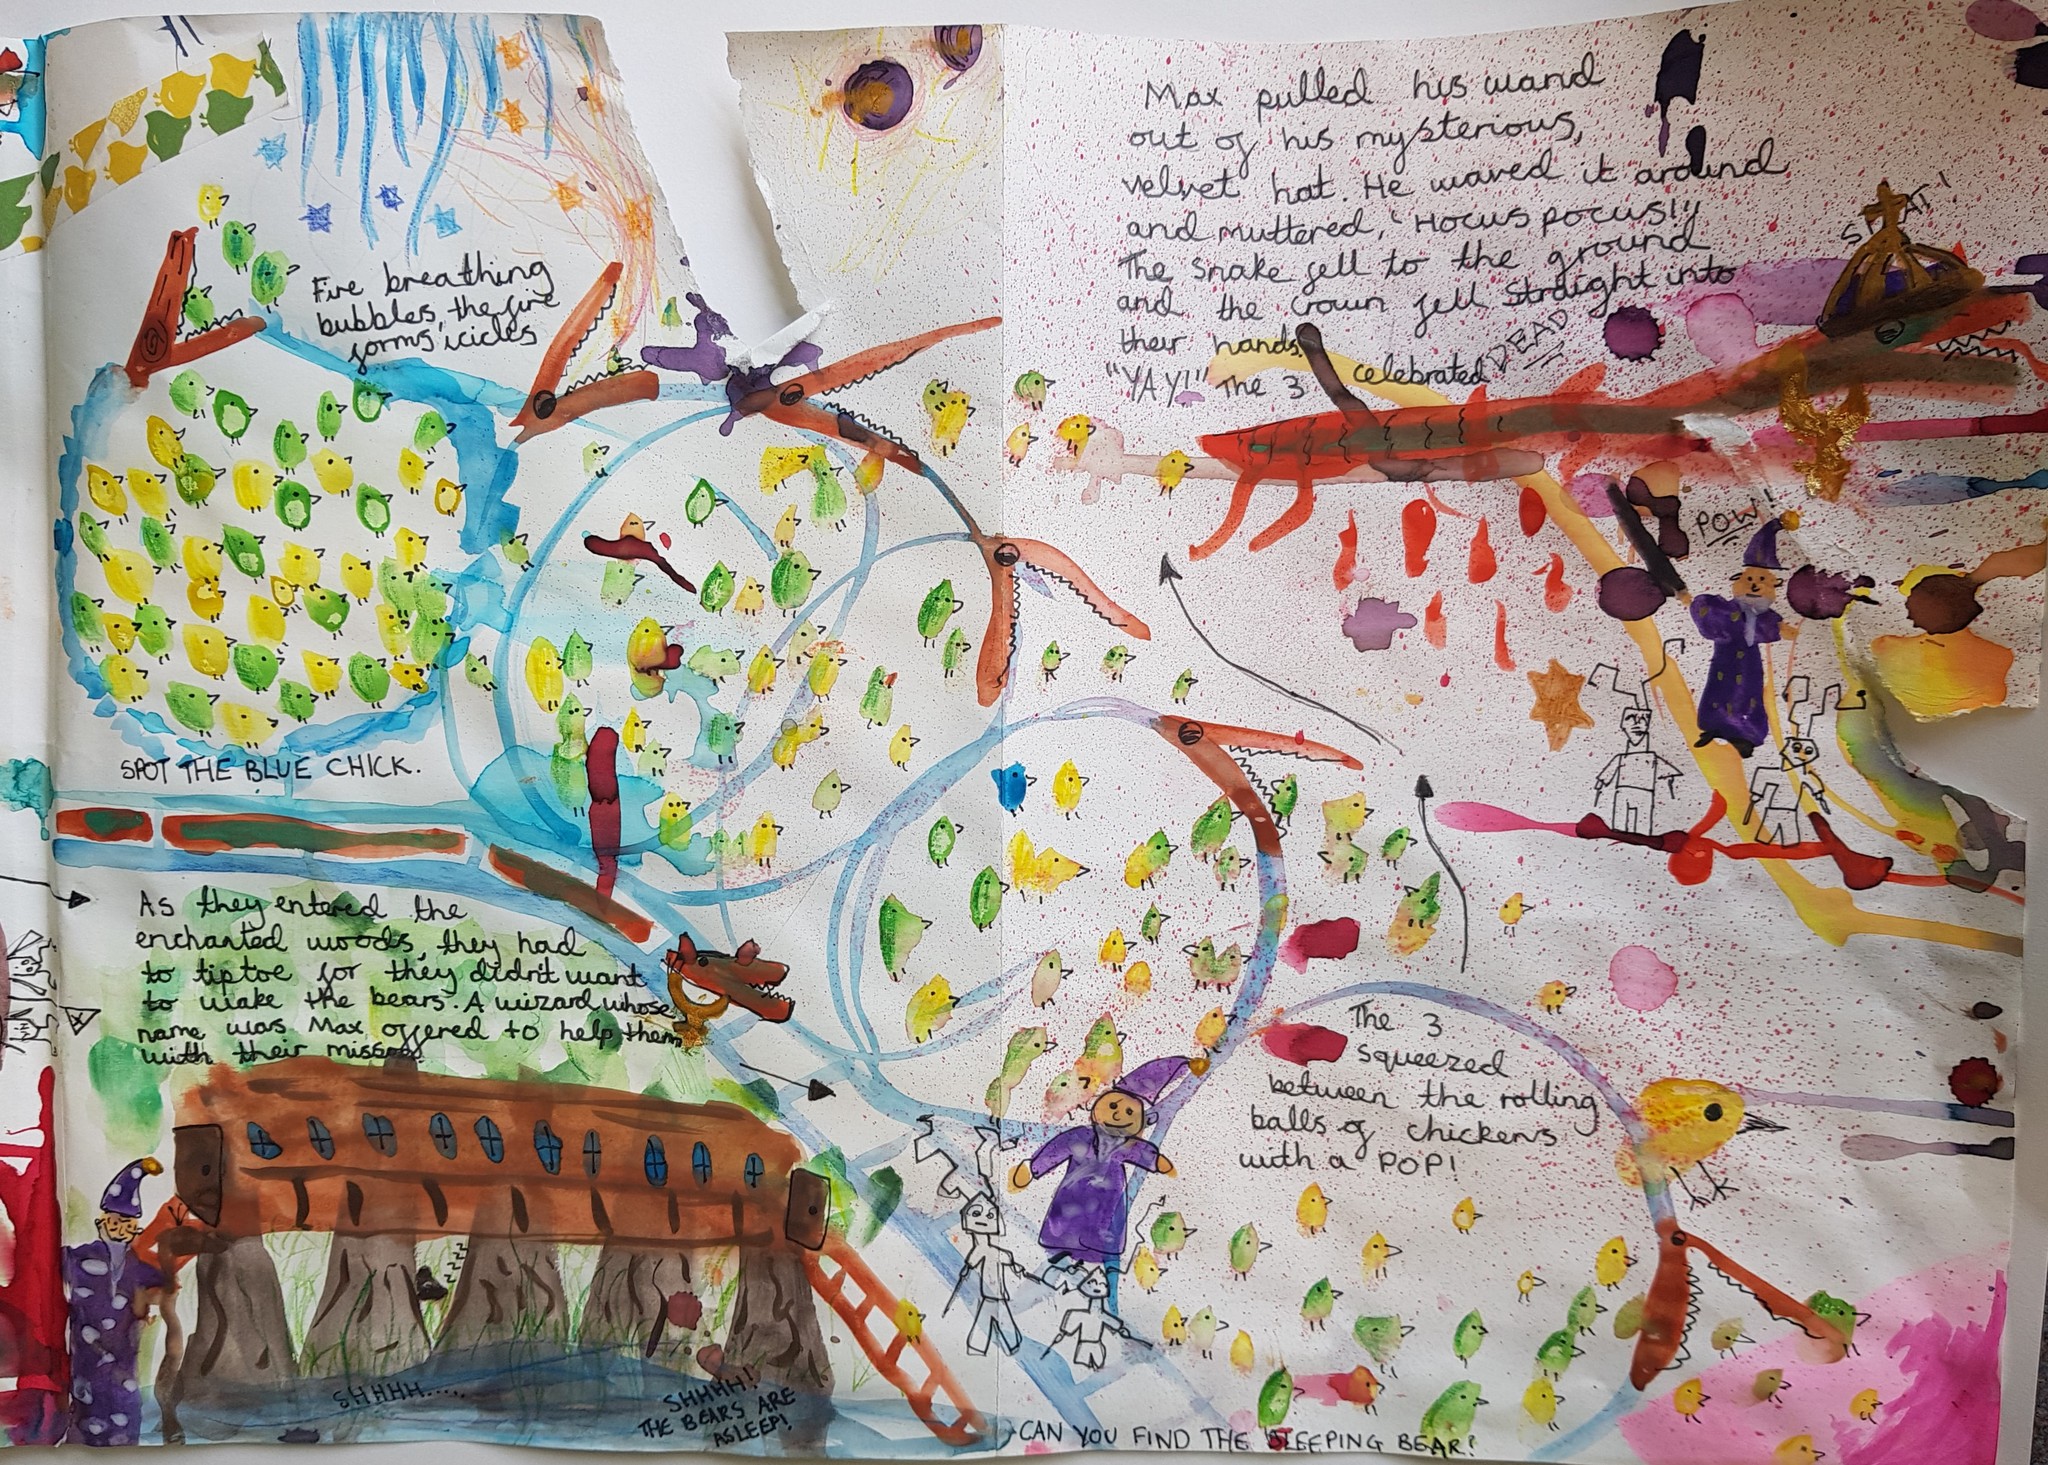 Fire breathing
bubbles, the fire
forms icicles
SPOT THE BLUE CHICK.
As they entered the
enchanted woods, they had
to tiptoe for they didn't want
to wake the bears. A wizard whose
name was Max offered to help them
with their mission
zzz
SHHHH.....
SHHHH!
THE BEARS ARE
ASLEEP!
CAN YOU FIND THE SLEEPING BEAR?
The 3
squeezed
between the rolling
balls of chickens
with a POP!
Max pulled his wand
out of his mysterious,
velvet hat. He waved it around
and muttered, 'HOCUS POCUS!'
The snake fell to the ground
and the crown fell straight into
their hands.
"YAY!" The 3 celebrated
DEAD
SPLAT!
POW!